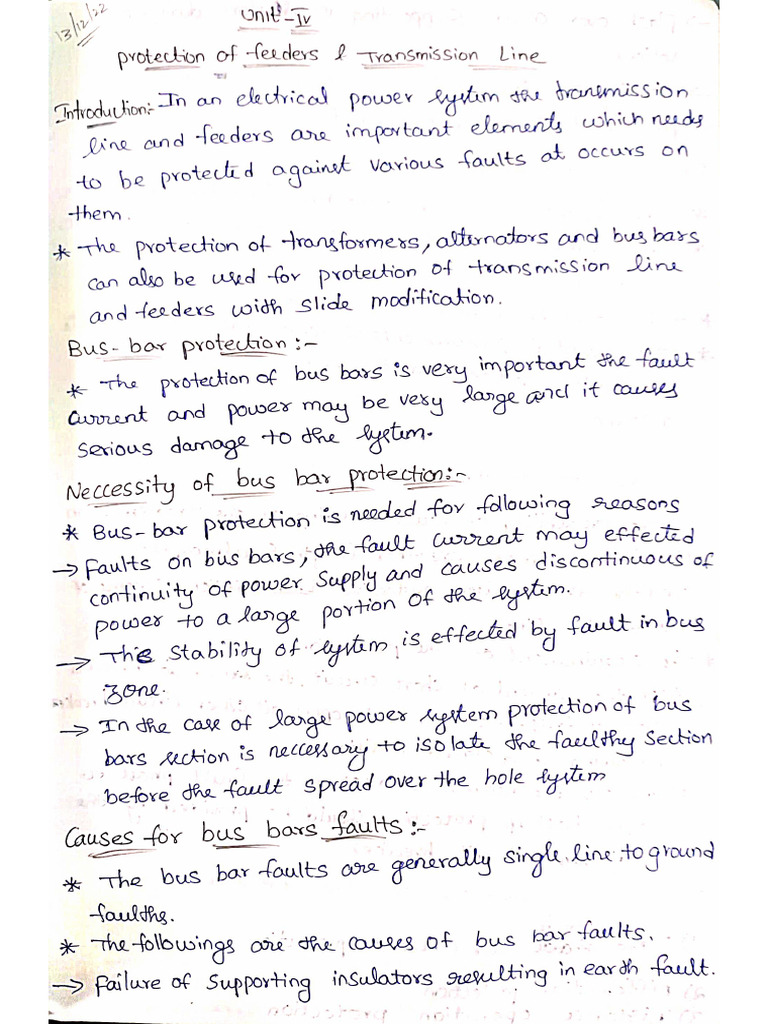 13/12/22
Unit-IV
protection of feeders & Transmission Line
Introduction:- In an electrical power system the transmission
line and feeders are important elements which needs
to be protected against various faults at occurs on
them.
* The protection of transformers, alternators and bus bars
can also be used for protection of transmission line
and feeders with slide modification.
Bus-bar protection:-
* The protection of bus bars is very important the fault
current and power may be very large and it causes
serious damage to the system.
Neccessity of bus bar protection:-
* Bus-bar protection is needed for following reasons
→ Faults on bus bars, the fault current may effected
continuity of power supply and causes discontinuous of
power to a large portion of the system.
→ The stability of system is effected by fault in bus
zone.
→ In the case of large power system protection of bus
bars section is neccessary to isolate the faulthy section
before the fault spread over the hole system
Causes for bus bars faults:-
* The bus bar faults are generally single line to ground
faulths.
* The followings are the causes of bus bar faults.
→ Failure of supporting insulators resulting in earth fault.